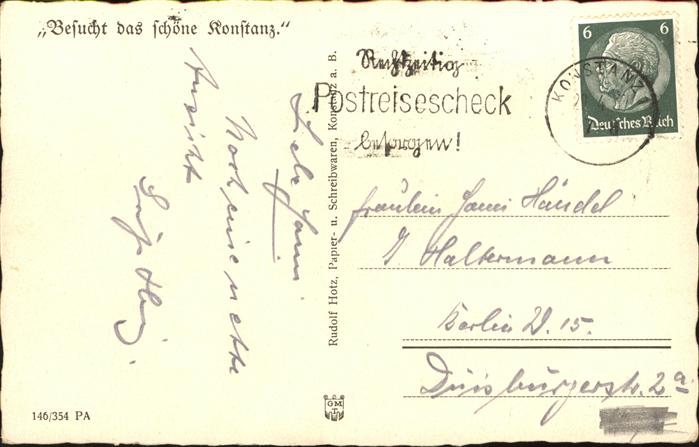 „Besucht das schöne Konstanz."
Liebe Hanni
Noch eine nette
Ansicht
Rudolf Hotz, Papier- u. Schreibwaren, Konstanz a. B.
Rechtzeitig
Postreisescheck
besorgen!
KONSTANZ
6 6
Deutsches Reich
Fräulein Hanni Händel
Haltermann
Berlin W. 15.
Duisburgerstr. 2a
146/354 PA